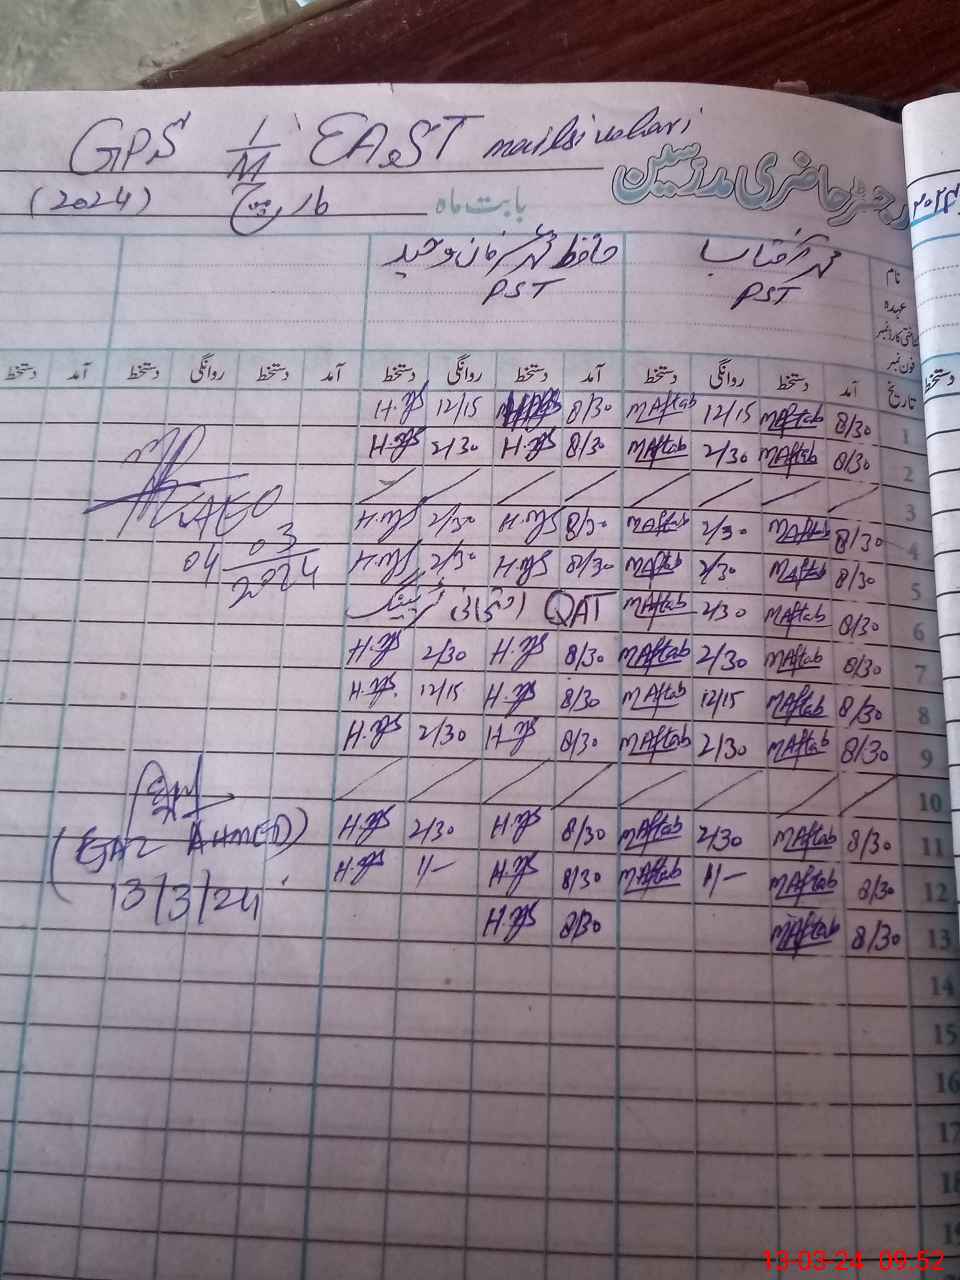 GPS 1/M EAST mailsi vehari
رجسٹر حاضری مدرسین
بابت ماہ مارچ (2024)
نام محمد آفتاب حافظ محمد
عہدہ PST PST
فون نمبر
تاریخ آمد دستخط روانگی دستخط آمد دستخط روانگی دستخط آمد دستخط روانگی دستخط آمد دستخط
1 8/30 MAftab 12/15 MAftab 8/30 12/15 H.
2 8/30 MAftab 2/30 MAftab 8/30 H. 2/30 H.
3 / / / / / / / /
4 8/30 MAftab 2/30 MAftab 8/30 H. 2/30 H.
5 8/30 MAftab 2/30 MAftab 8/30 H. 2/30 H.
6 8/30 MAftab 2/30 MAftab QAT ٹریننگ
7 8/30 MAftab 2/30 MAftab 8/30 H. 2/30 H.
8 8/30 MAftab 12/15 MAftab 8/30 H. 12/15 H.
9 8/30 MAftab 2/30 MAftab 8/30 H. 2/30 H.
10 / / / / / / / /
11 8/30 MAftab 2/30 MAftab 8/30 H. 2/30 H.
12 8/30 MAftab 1/- MAftab 8/30 H. 1/- H.
13 8/30 MAftab 8/30 H.
14
15
16
17
AEO
04 03
2024
AHMED)
13/3/24
13-03-24 09:52